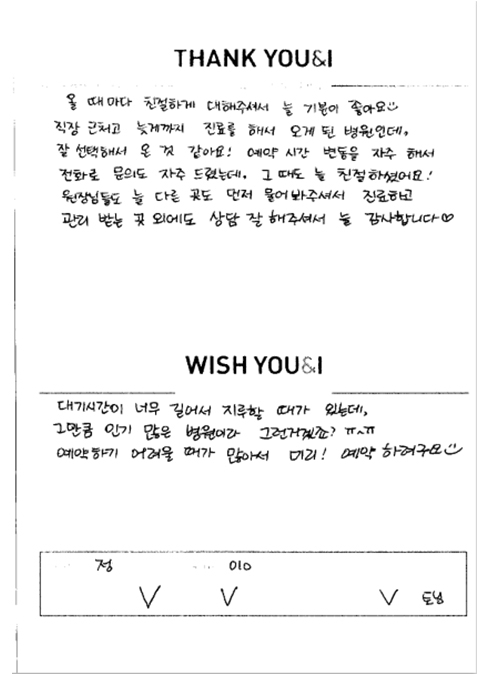 THANK YOU&I
올 때마다 친절하게 대해주셔서 늘 기분이 좋아요
직장 근처고 늦게까지 진료를 해서 오게 된 병원인데,
잘 선택해서 온 것 같아요! 예약 시간 변동을 자주 해서
전화로 문의도 자주 드렸는데, 그 때도 늘 친절하셨어요!
원장님들도 늘 다른 곳도 먼저 물어봐주셔서 진료하고
관리 받는 곳 외에도 상담 잘 해주셔서 늘 감사합니다♡
WISH YOU&I
대기시간이 너무 길어서 지루할 때가 있는데,
그만큼 인기 많은 병원이라 그런거겠죠? ㅠ^ㅠ
예약하기 어려울 때가 많아서 미리! 예약 하려구요
정 010